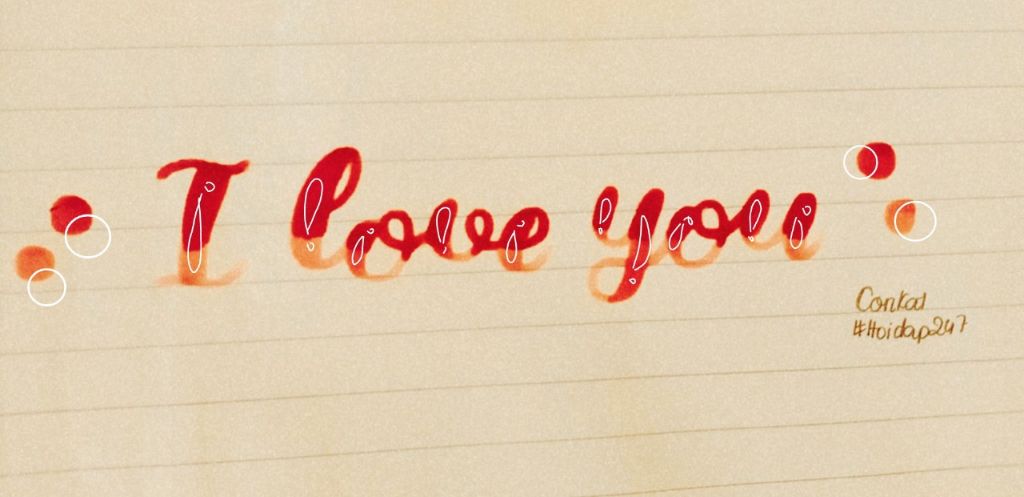 I love you
Conkal
#Hoidap247